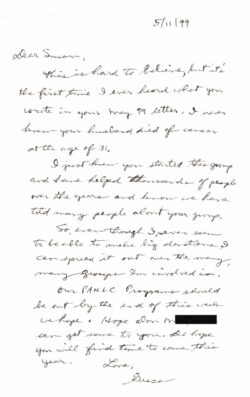 5/11/99
Dear Susan,
This is hard to believe, but it's
the first time I ever heard what you
wrote in your May 99 letter. I never
knew your husband died of cancer
at the age of 31.
I just knew you started this group
and have helped thousands of people
over the years and know we have
told many people about your group.
So, even though I never seem
to be able to make big donations I
can spread it out over the many,
many groups I'm involved in.
Our Programs should
be out by the end of this week
we hope. Hope Don
can get some to you. I hope
you will find time to come this
year.
Love,
Grace